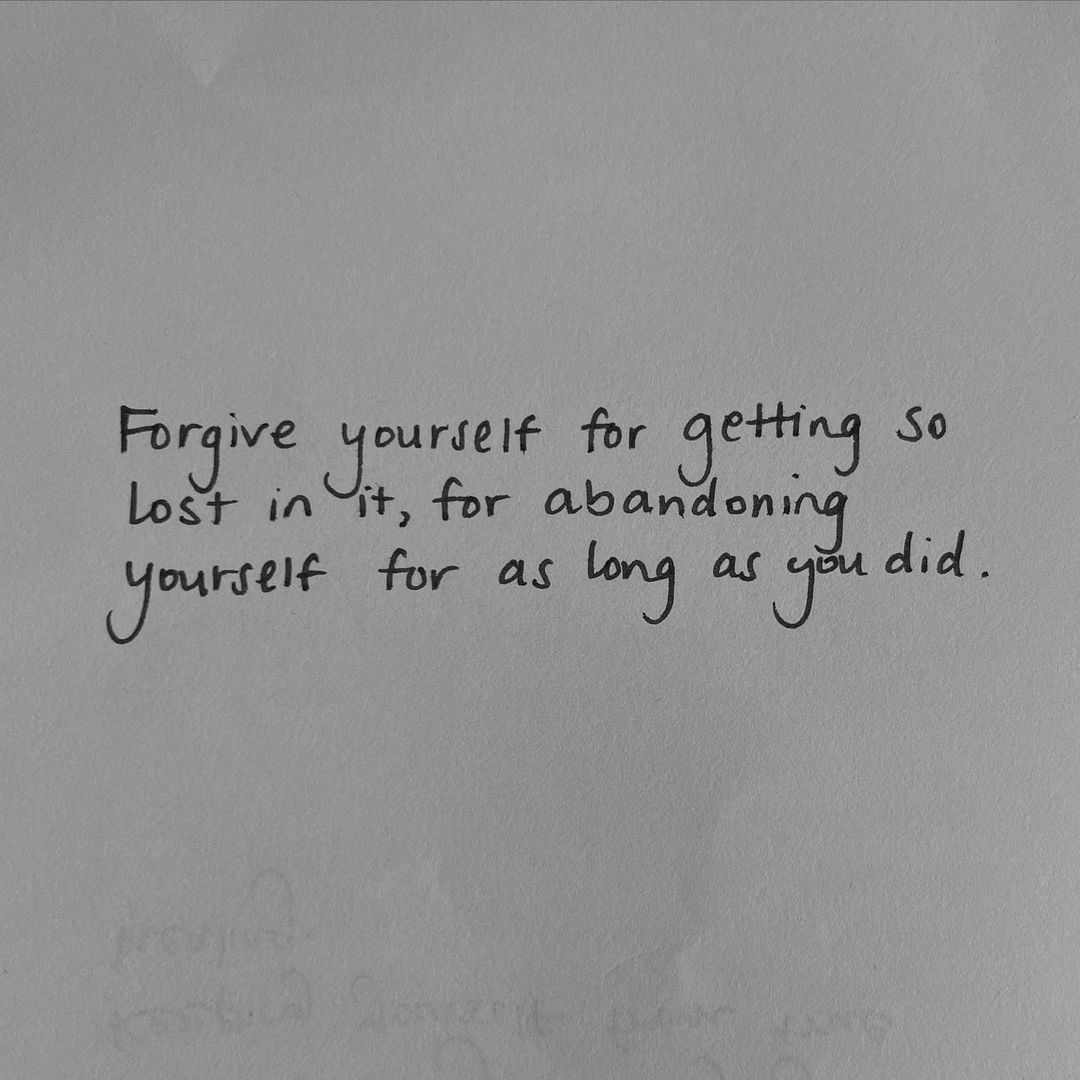 Forgive yourself for getting so
lost in it, for abandoning
yourself for as long as you did.